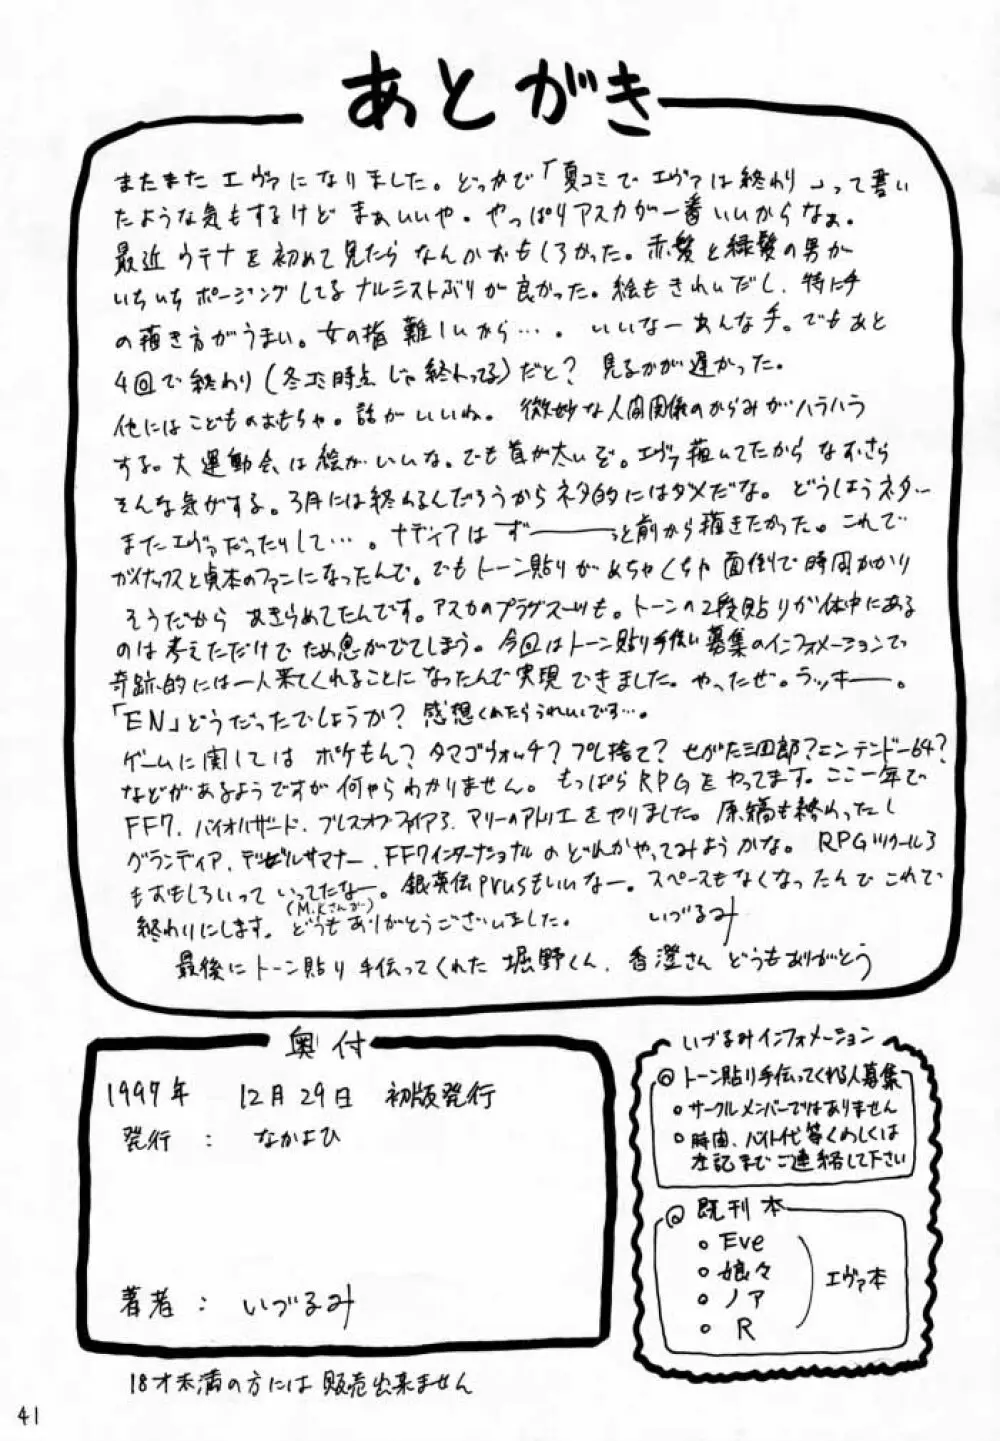 あとがき
またまたエヴァになりました。どっかで「夏コミでエヴァは終わり」って書い
たような気もするけどまぁいいや。やっぱりアスカが一番いいからなぁ。
最近ウテナを初めて見たらなんかおもしろかった。赤髪と緑髪の男が
いちいちポージングしてるナルシストぶりが良かった。絵もきれいだし、特に手
の描き方がうまい。女の指難しいから…。いいなーあんな手。でもあと
4回で終わり(冬コミ時点じゃ終わってる)だと?見るのが遅かった。
他にはこどものおもちゃ。話がいいね。微妙な人間関係のからみがハラハラ
する。大運動会は絵がいいな。でも首が太いぞ。エヴァ描いてたからなおさら
そんな気がする。3月には終わるんだろうからネタ的にはダメだな。どうしようネタ…
またエヴァだったりして…。ナディアはずーーっと前から描きたかった。これで
ガイナックスと貞本のファンになったんで。でもトーン貼りがめちゃくちゃ面倒で時間かかり
そうだからあきらめてたんです。アスカのプラグスーツも。トーンの2段貼りが体中にある
のは考えただけでため息がでてしまう。今回はトーン貼り手伝い募集のインフォメーションで
奇跡的には一人来てくれることになったんで実現できました。やったぜ。ラッキー。
「EN」どうだったでしょうか?感想くれたらうれしいです…。
ゲームに関してはポケもん?タマゴウォッチ?プレ捨て?せがた三四郎?ニンテンドー64?
などがあるようですが何やらわかりません。もっぱらRPGをやってます。ここ一年で
FF7、バイオハザード、ブレスオブファイア3、マリーのアトリエをやりました。原稿も終わったし
グランディア、デビルサマナー、FF7インターナショナルのどれかやってみようかな。RPGツクール3
もおもしろいっていってたなー。銀英伝prusもいいなー。スペースもなくなったんでこれで
(M.Kさんが)
終わりにします。どうもありがとうございました。 いづるみ
最後にトーン貼り手伝ってくれた堀野くん、香澄さんどうもありがとう
奥付
1997年 12月29日 初版発行
発行 : なかよひ
著者 : いづるみ
18才未満の方には販売出来ません
いづるみインフォメーション
◎トーン貼り手伝ってくれる人募集
○サークルメンバーではありません
○時間、バイト代等くわしくは
左記までご連絡して下さい
◎既刊本
○Eve
○娘々
○ノア
○R
エヴァ本
41